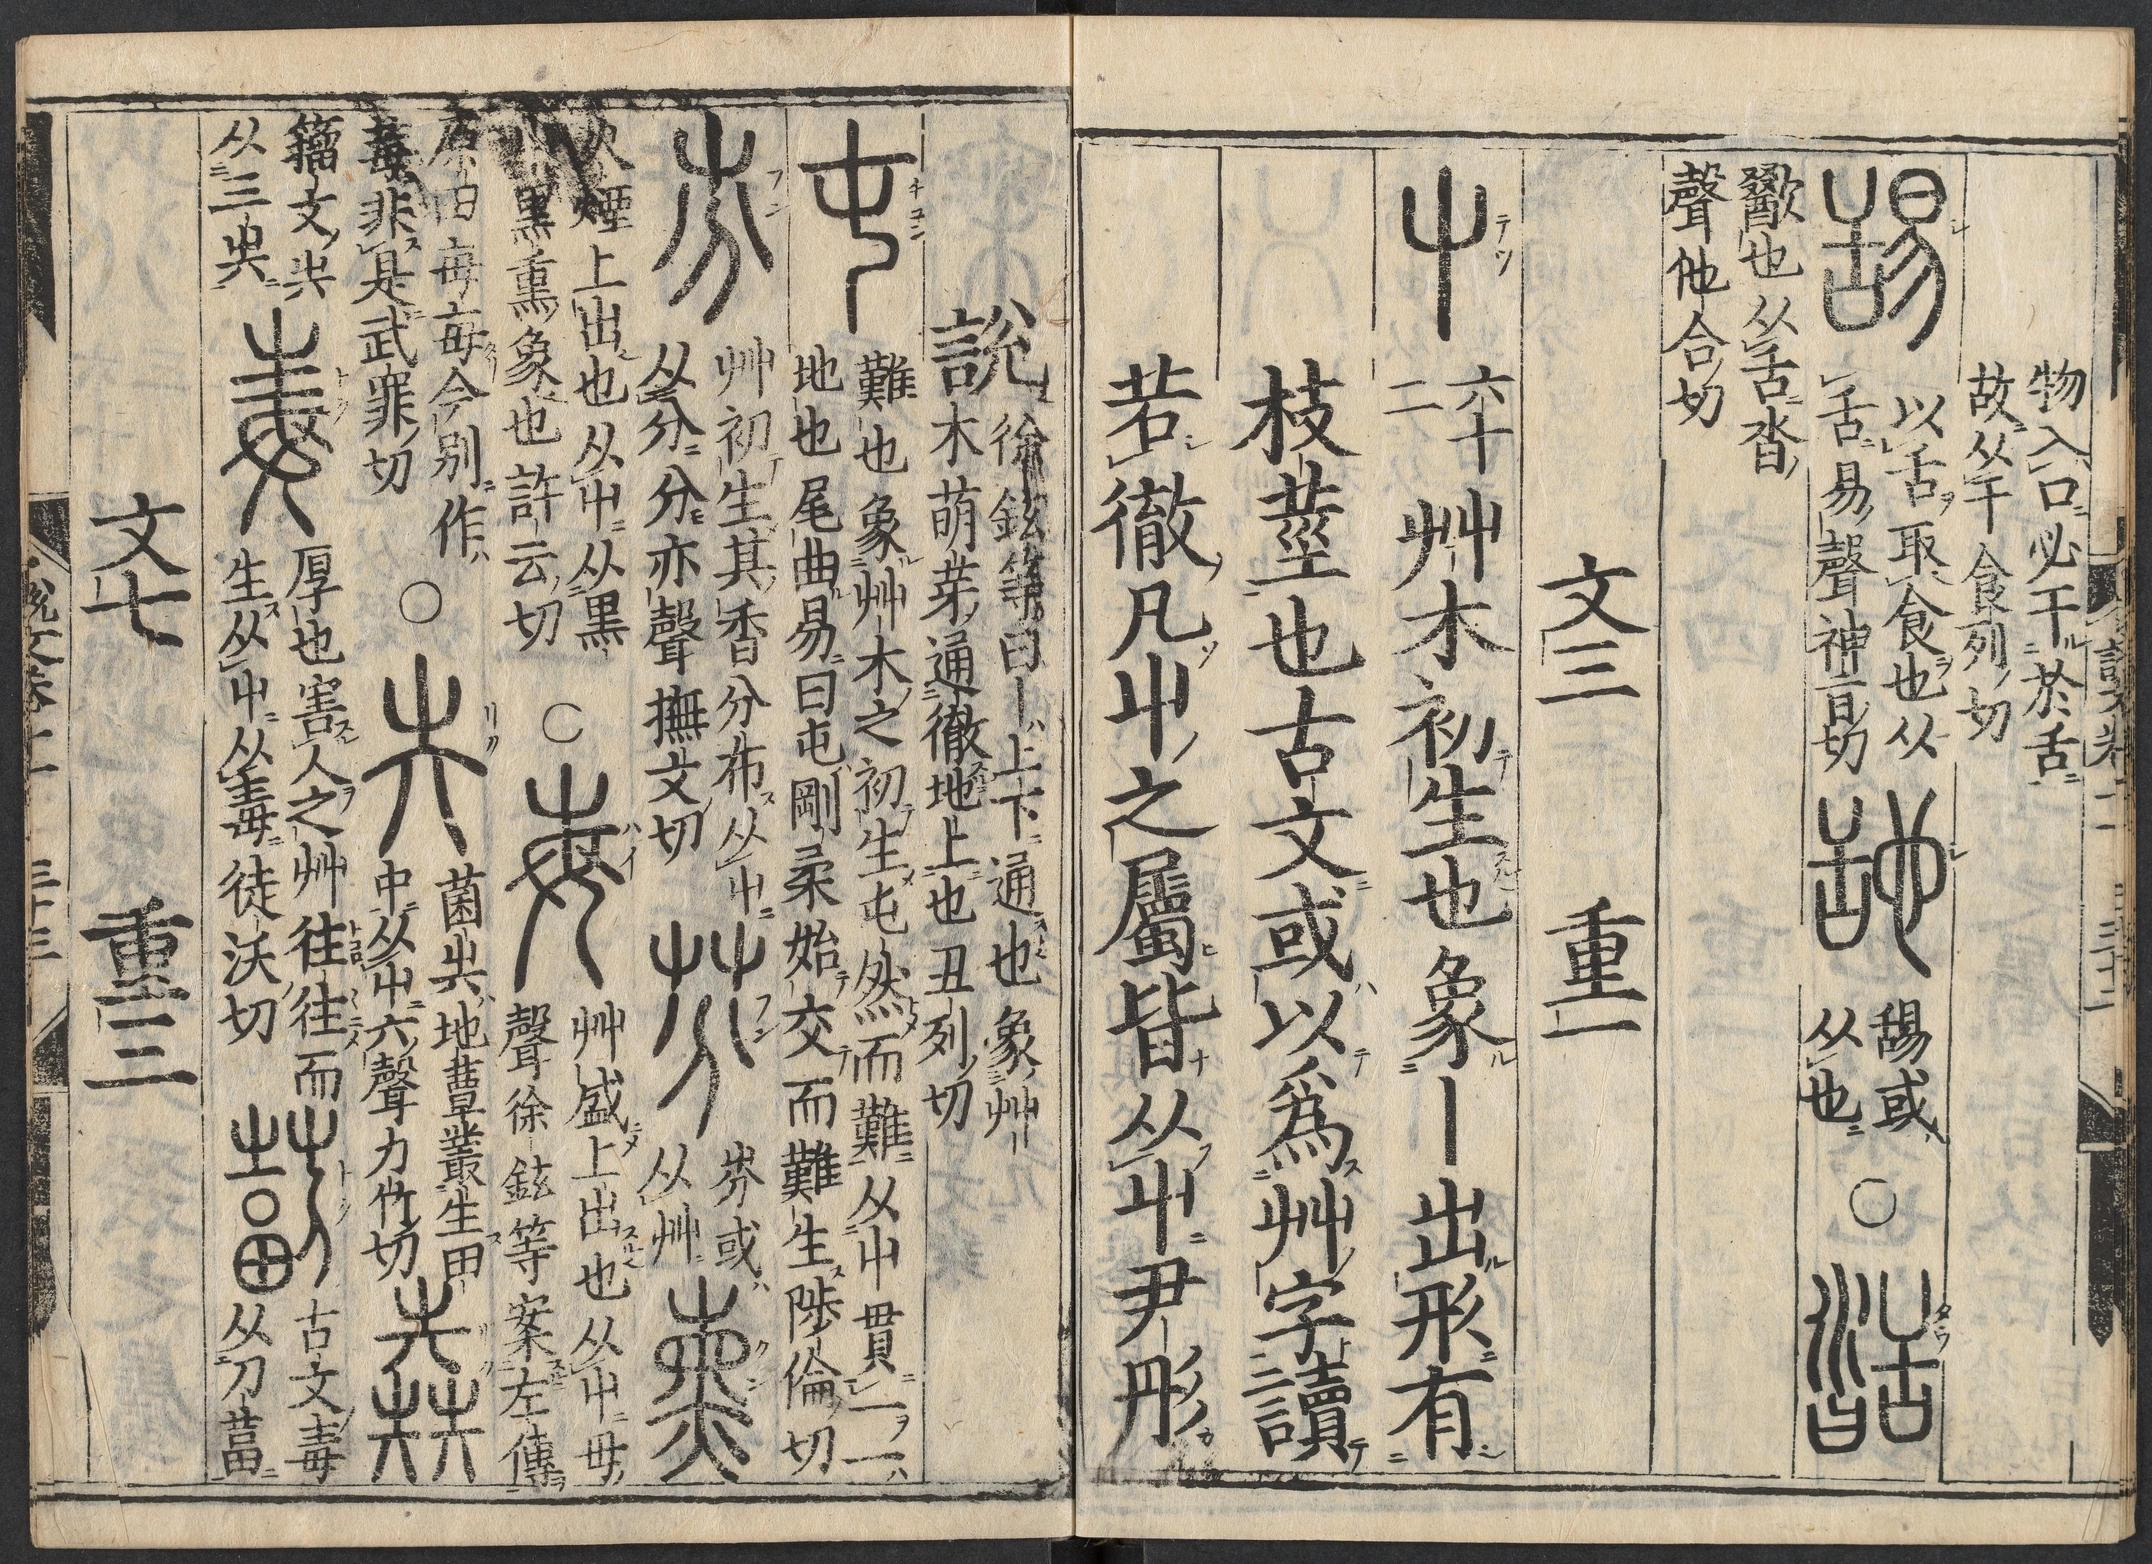 物入口必干於舌
故从干食列切
以舌取食也从
舌易聲神旨切
舓或
从也
歠也从舌沓
聲他合切
文三 重一
屮 六十二 艸木初生也象丨出形有
枝莖也古文或以爲艸字讀
若徹凡屮之屬皆从屮尹彤
說
徐鉉等曰丨上下通也象艸
木萌芽通徹地上也丑列切
屯
難也象艸木之初生屯然而難从屮貫一一
地也尾曲易曰屯剛柔始交而難生陟倫切
艸初生其香分布从屮
从分分亦聲撫文切
芬或
从艸
火煙上出也从屮从黑
屮黑熏象也許云切
○
艸盛上出也从屮毋
聲徐鉉等案左傳
原田每每今別作
莓非是武罪切
○
菌圥地蕈叢生田
中从屮六聲力竹切
籒文圥
从三圥
厚也害人之艸往往而
生从屮从毒徒沃切
古文毒
从刀葍
文七 重三
說文卷一 三十二
說文卷一 三十三